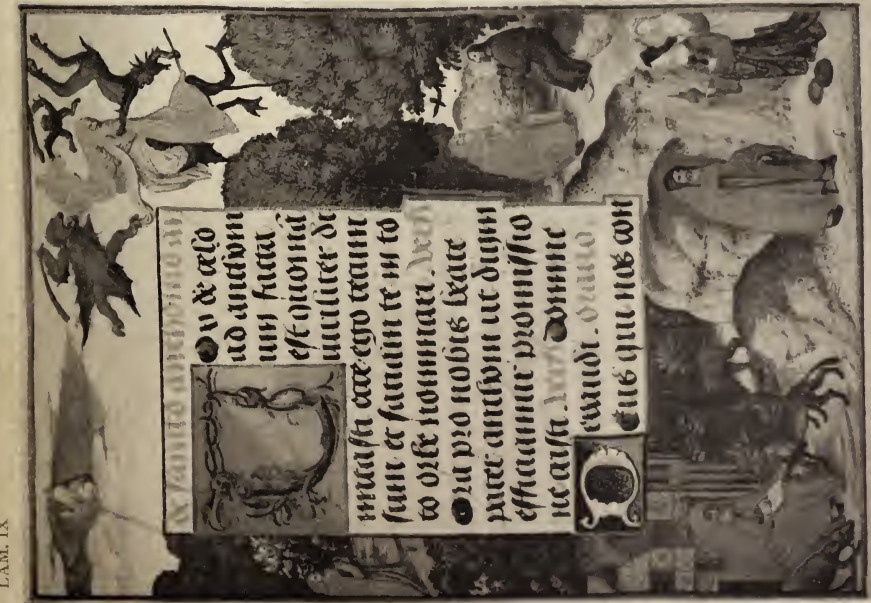 LAM. IX
sancto anthonio an
Vox de celo
ad anthoni
um facta
est quoniā
uiriliter di
micasti ecce ego tecum
sum et faciam te in to
to orbe nominari. Vers
Ora pro nobis beate
pater anthoni ut digni
efficiamur promissio
ne cristi. Vers Domine
exaudi. Oracio
Deus qui nos con